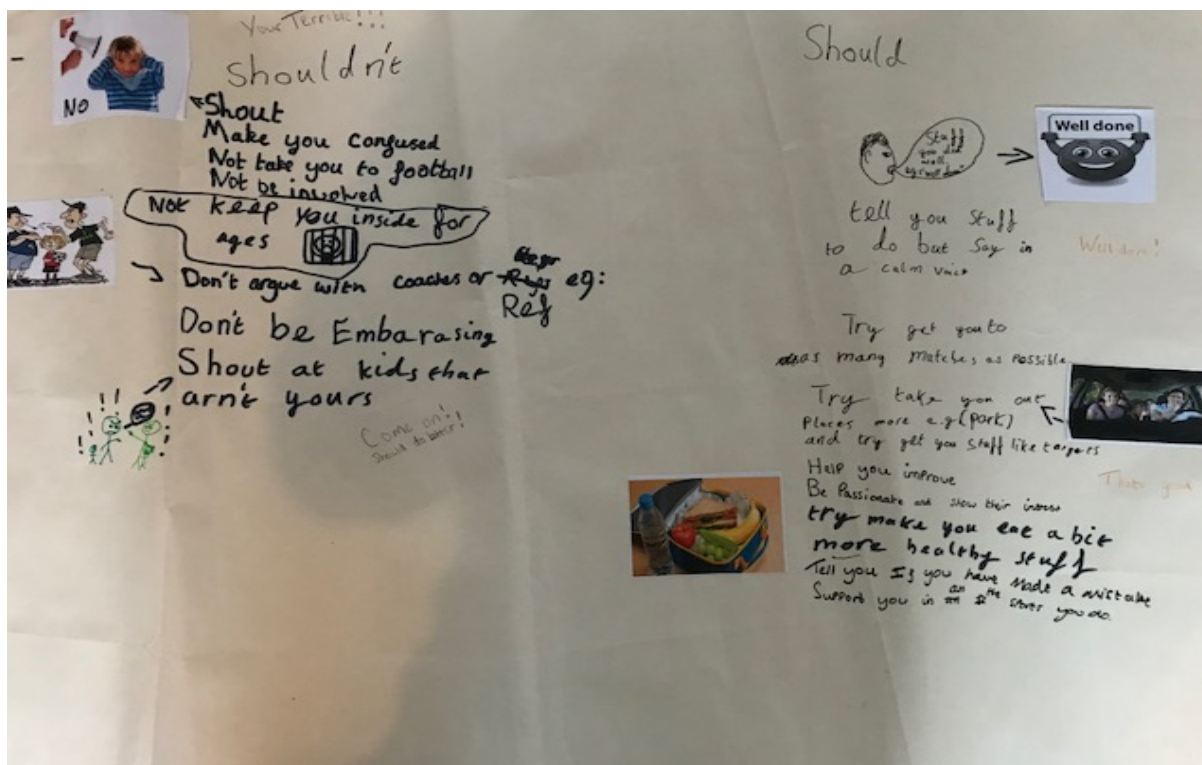 Your Terrible!!!
Shouldn't
NO
Shout
Make you confused
Not take you to football
Not be involved
Not keep you inside for
ages
Don't argue with coaches or eg:
Ref
Don't be Embarasing
Shout at kids that
arn't yours
Come on!
Should do better!
Should
Stuff
you did
well
eg "well done"
Well done
tell you stuff
to do but say in
a calm voice
Well done!
Try get you to
as many matches as possible
Try take you out
Places more e.g (park)
and try get you stuff like targets
Help you improve
Thats good
Be Passionate and show their
try make you eat a bit
more healthy stuff
Tell you If you have made a mistake
Support you in you do.